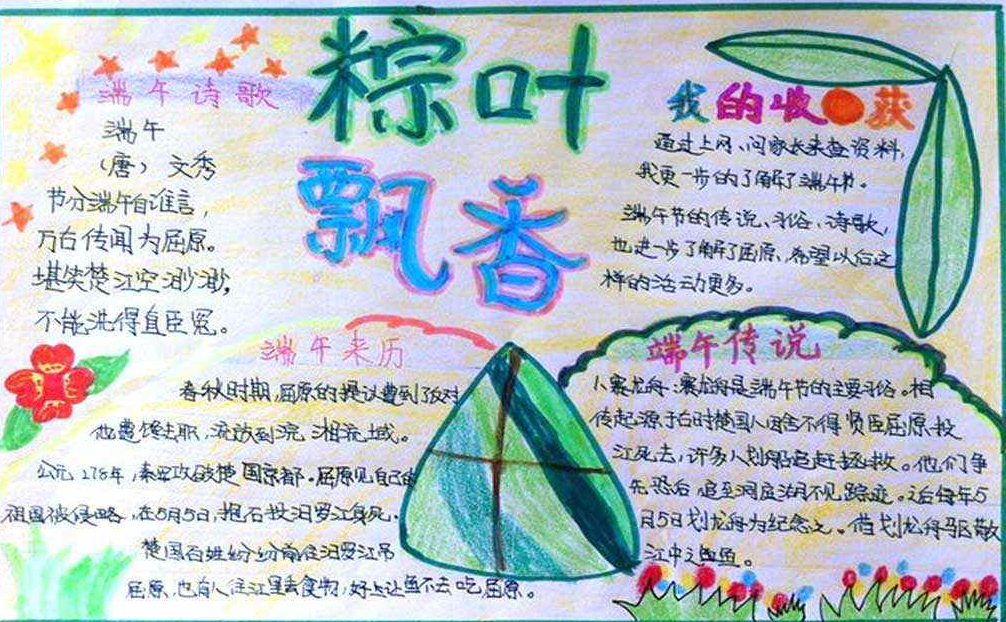 粽叶
飘香
端午诗歌
端午
(唐)文秀
节分端午自谁言,
万古传闻为屈原。
堪笑楚江空渺渺,
不能洗得直臣冤。
我的收获
通过上网、问家长来查资料,
我更一步的了解了端午节。
端午节的传说、习俗、诗歌,
也进一步了解了屈原,希望以后这
样的活动更多。
端午来历
春秋时期,屈原的提议遭到了反对
他遭馋去职,流放到沅 湘流域。
公元278年,秦军攻破楚国京都。屈原见自己的
祖国被侵略,在5月5日,抱石投汨罗江身死.
楚国百姓纷纷前往汨罗江吊
屈原,也有人往江里丢食物,好让鱼不去吃屈原。
端午传说
1、赛龙舟:赛龙舟是端午节的主要习俗。相
传起源于古时楚国人因舍不得贤臣屈原投
江死去,许多人划船追赶拯救。他们争
先恐后,追至洞庭湖不见踪迹。之后每年5
月5日划龙舟为纪念之。借划龙舟驱散
江中之鱼。